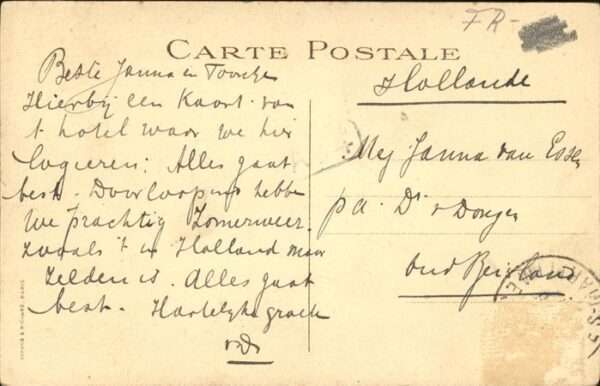 FR-
CARTE POSTALE
Beste Janna en
Hierbij een Kaart van
't hotel waar we hier
logieren. Alles gaat
best. Doorloopend hebben
we prachtig Zomerweer.
zooals 't in Holland maar
zelden is. Alles gaat
best. Hartelijke groeten
Hollande
Mej Janna van Essen
pa. Dr v Donger
Oud Beijerland